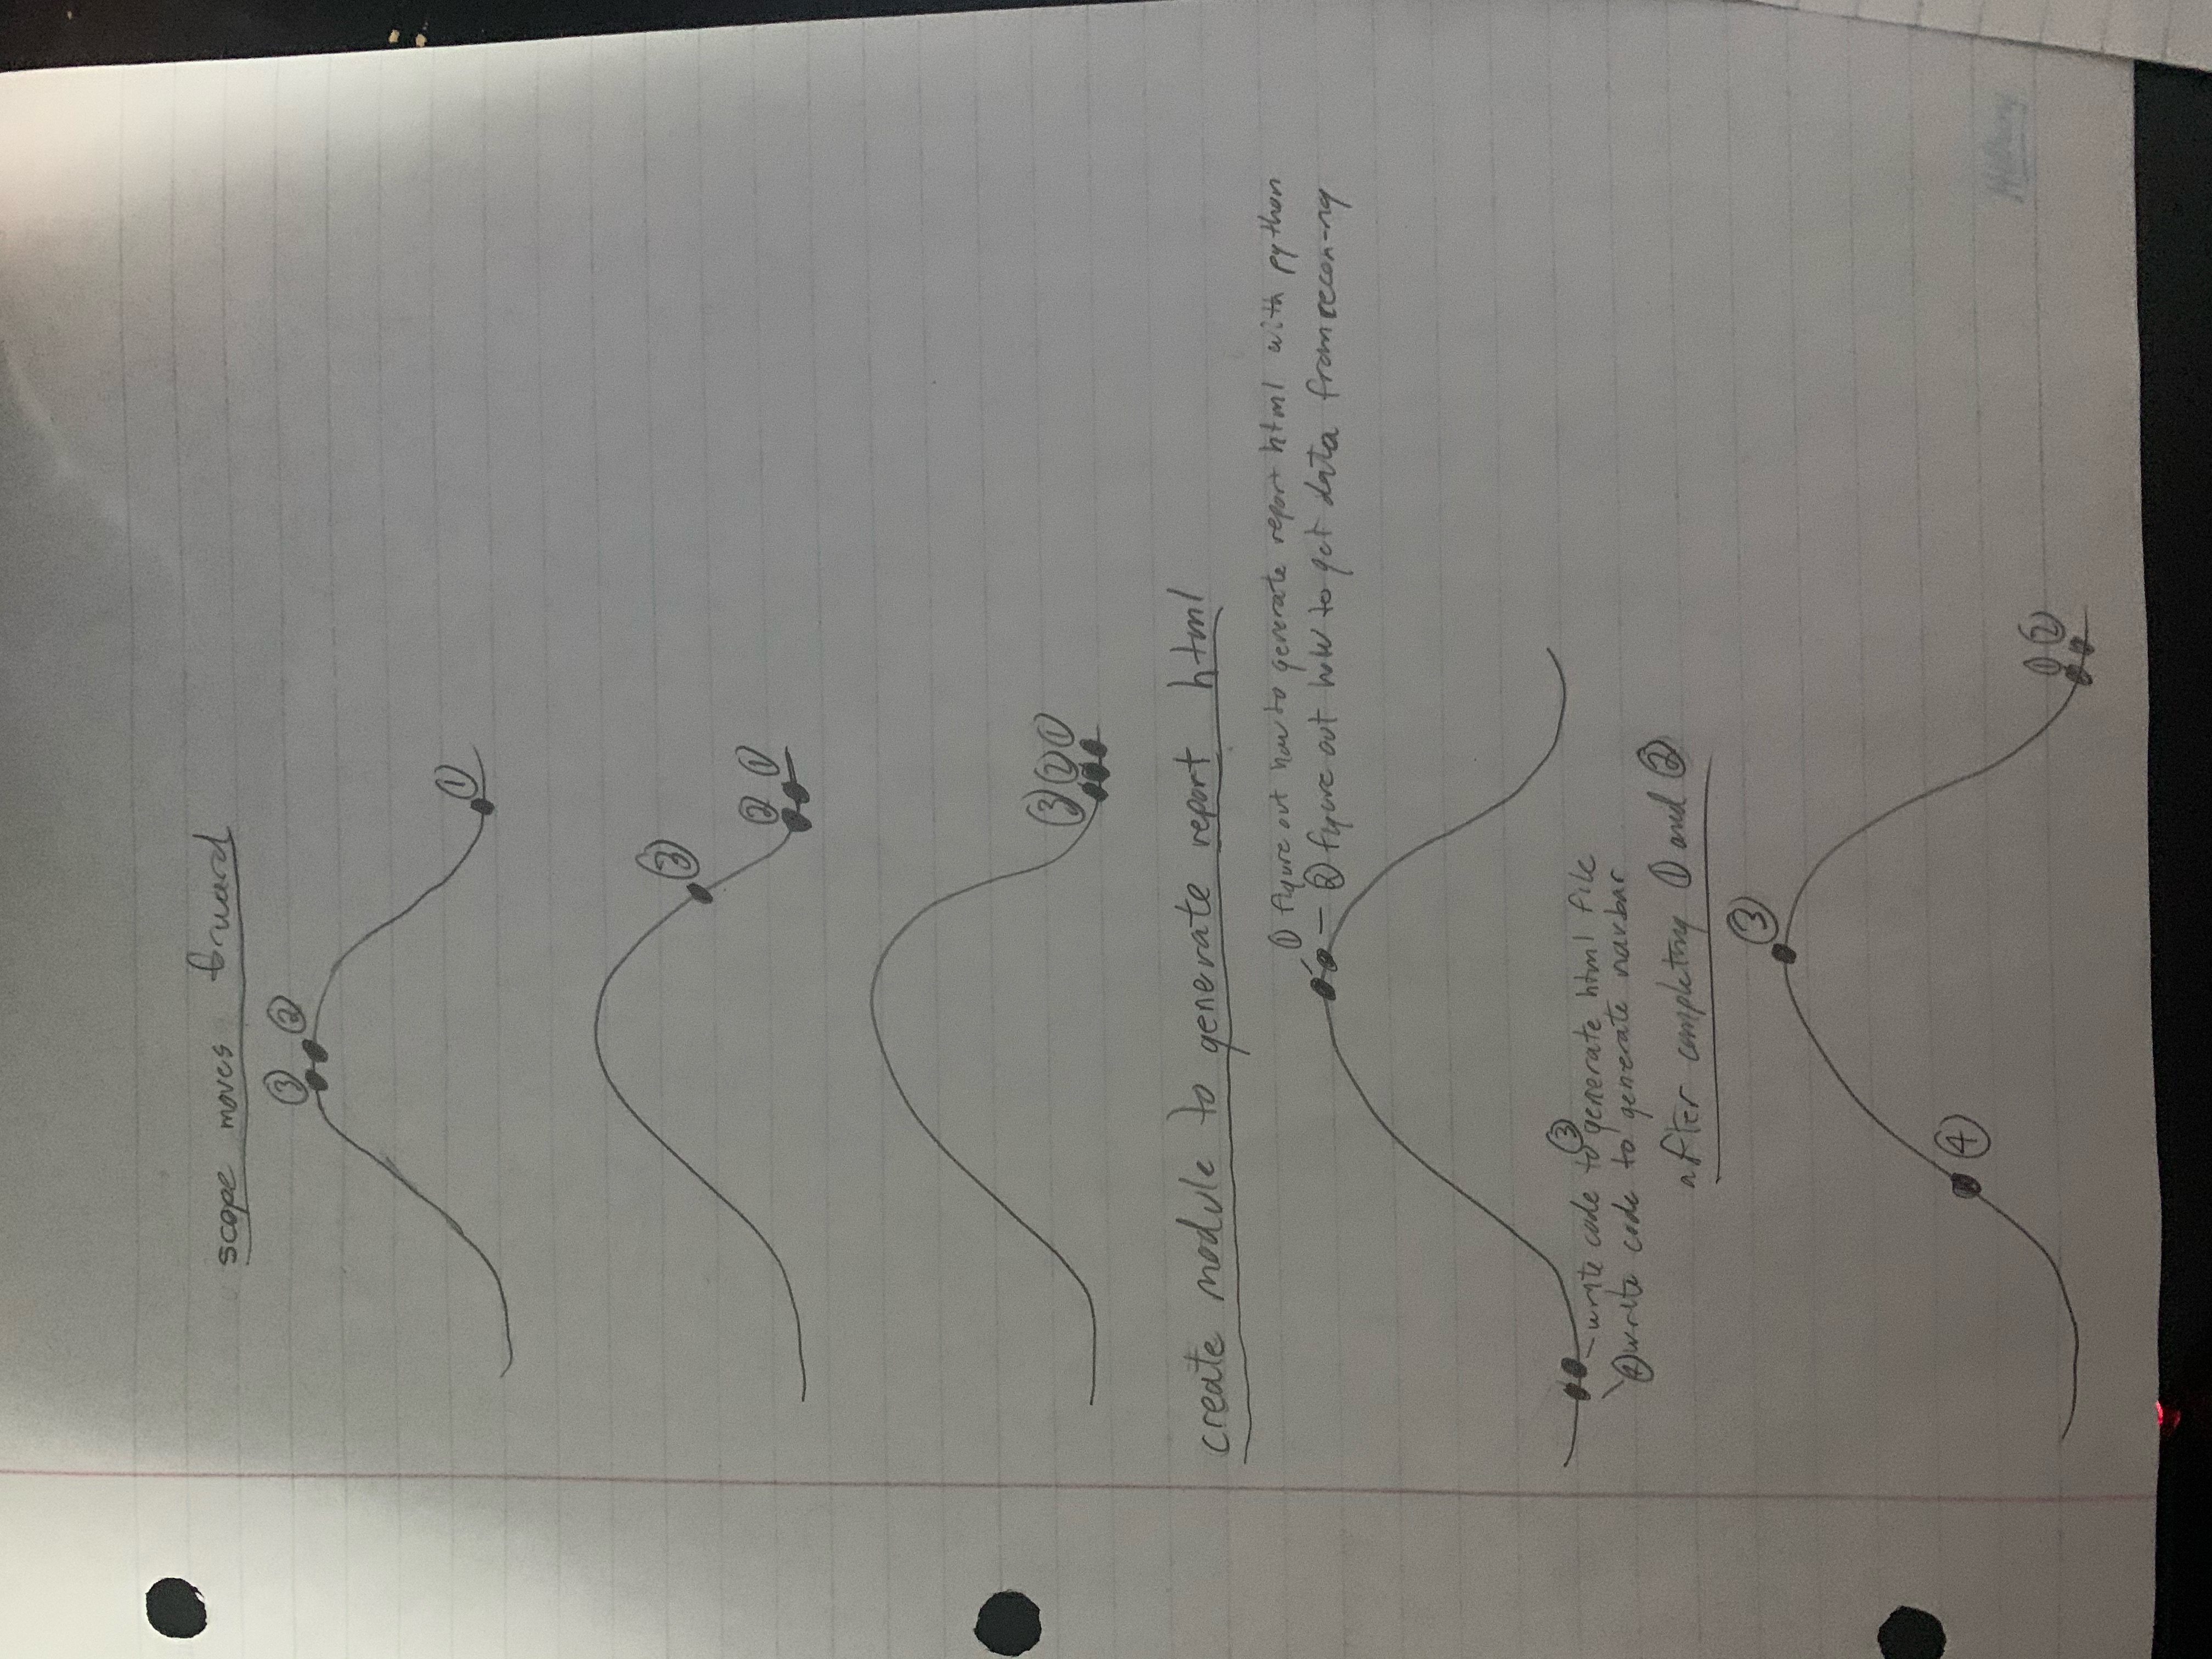 scope moves forward
③ ②
①
③
② ①
③ ② ①
create module to generate report html
① figure out how to generate report html with python
② figure out how to get data from recon-ng
③
write code to generate html file
④ write code to generate navbar
after completing ① and ②
③
④
① ②